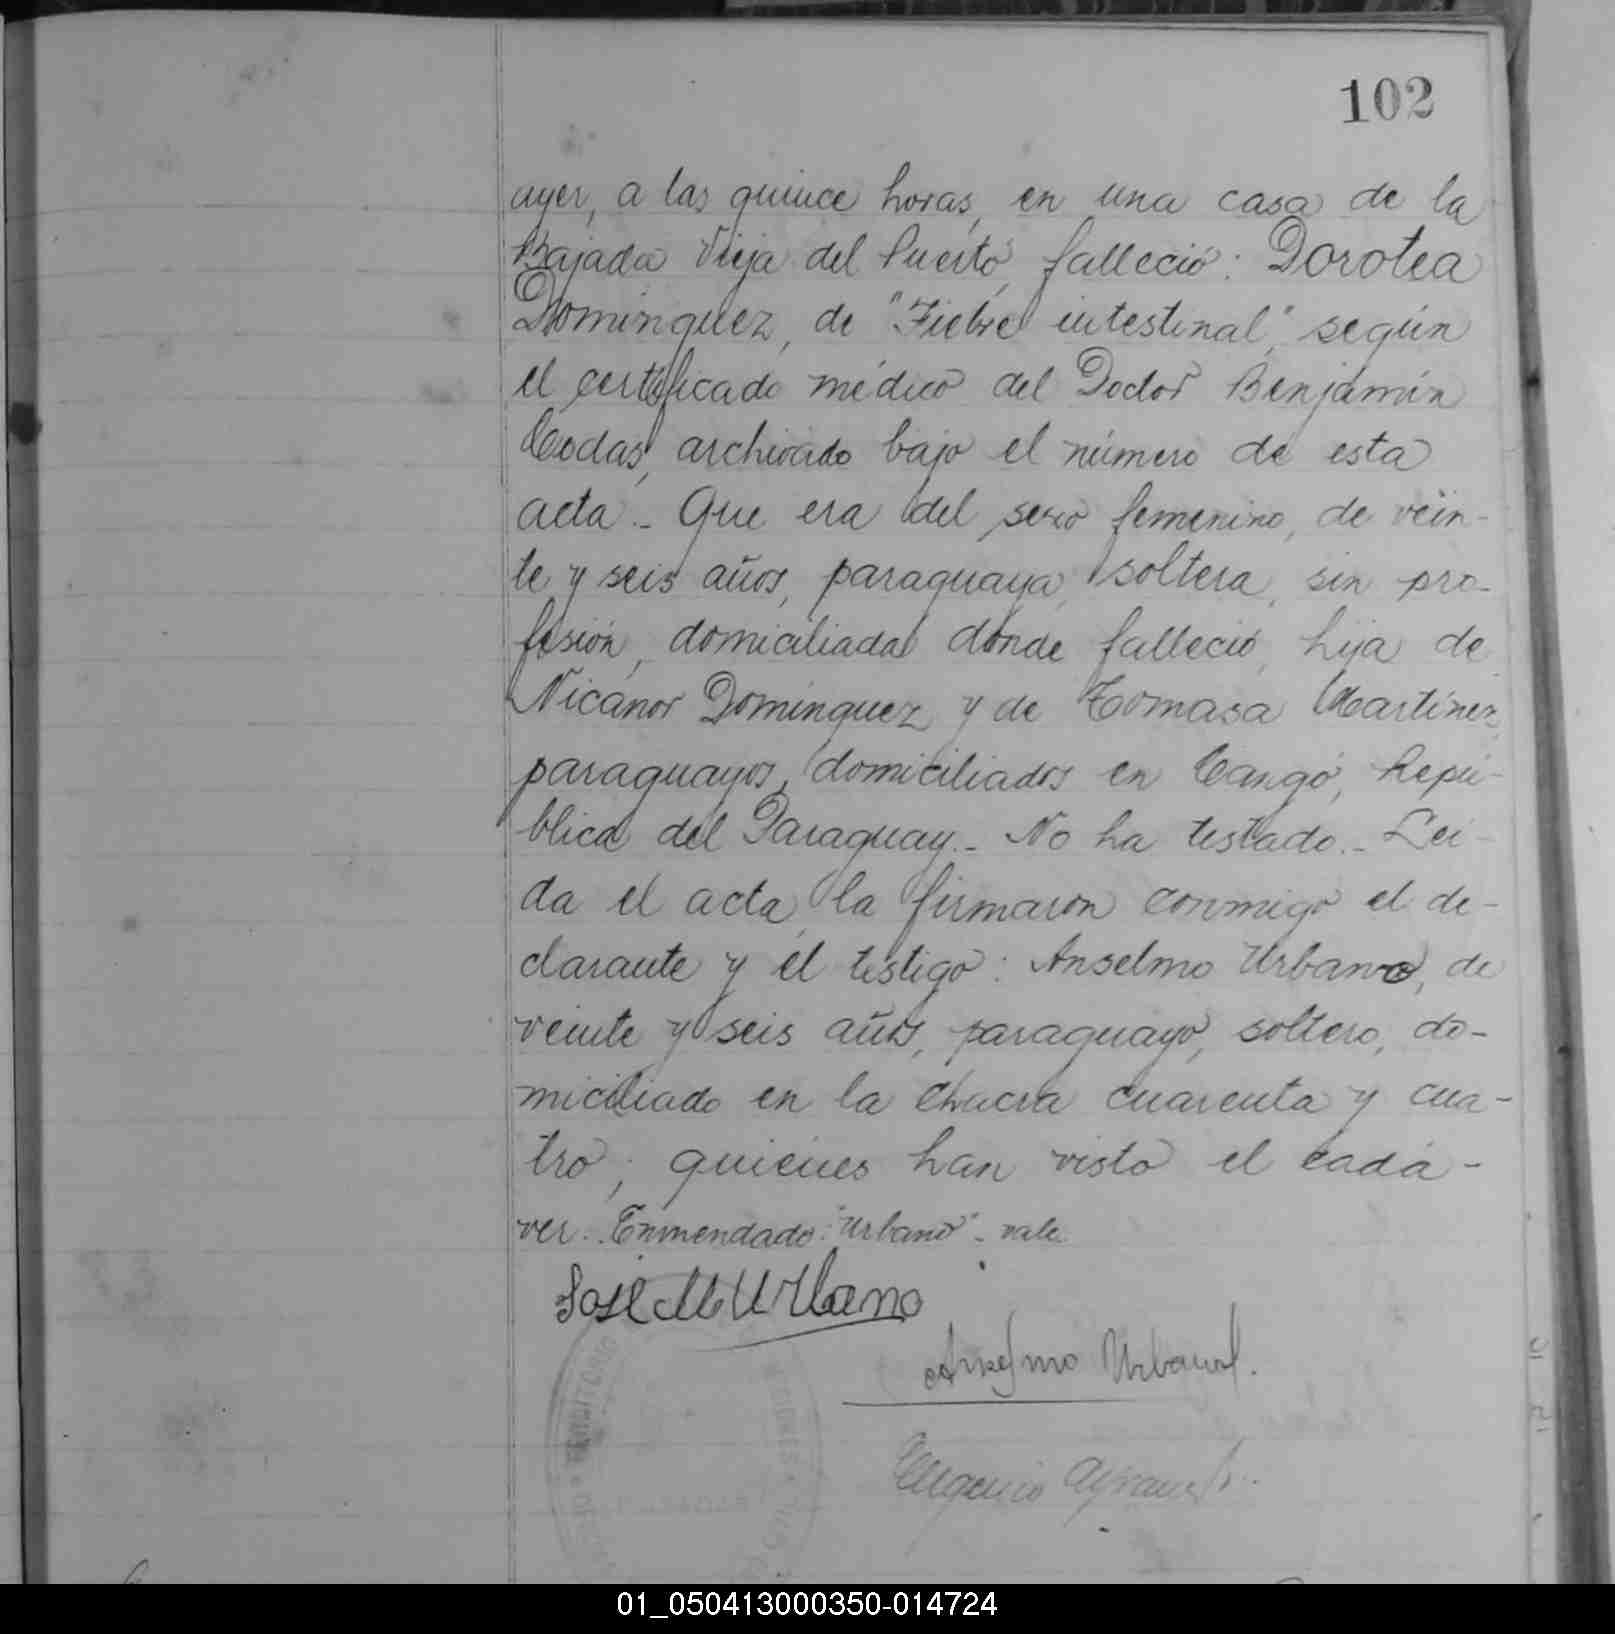 102
ayer, a las quince horas, en una casa de la
Bajada Vieja del Puerto, falleció: Dorotea
Domínguez, de "Fiebre intestinal", según
el certificado médico del Doctor Benjamín
Codas, archivado bajo el número de esta
acta.- Que era del sexo femenino, de vein-
te y seis años, paraguaya, soltera, sin pro-
fesión, domiciliada donde falleció, hija de
Nicanor Domínguez y de Tomasa Martínez,
paraguayos, domiciliados en Cangó, Repú-
blica del Paraguay.- No ha testado.- Leí-
da el acta, la firmaron conmigo el de-
clarante y el testigo: Anselmo Urbano, de
veinte y seis años, paraguayo, soltero, do-
miciliado en la chacra cuarenta y cua-
tro; quienes han visto el cadá-
ver. Enmendado: "Urbano" - vale.
José M Urbano
Anselmo Urbano
Eugenio
TERRITORIO
MISIONES
01_050413000350-014724